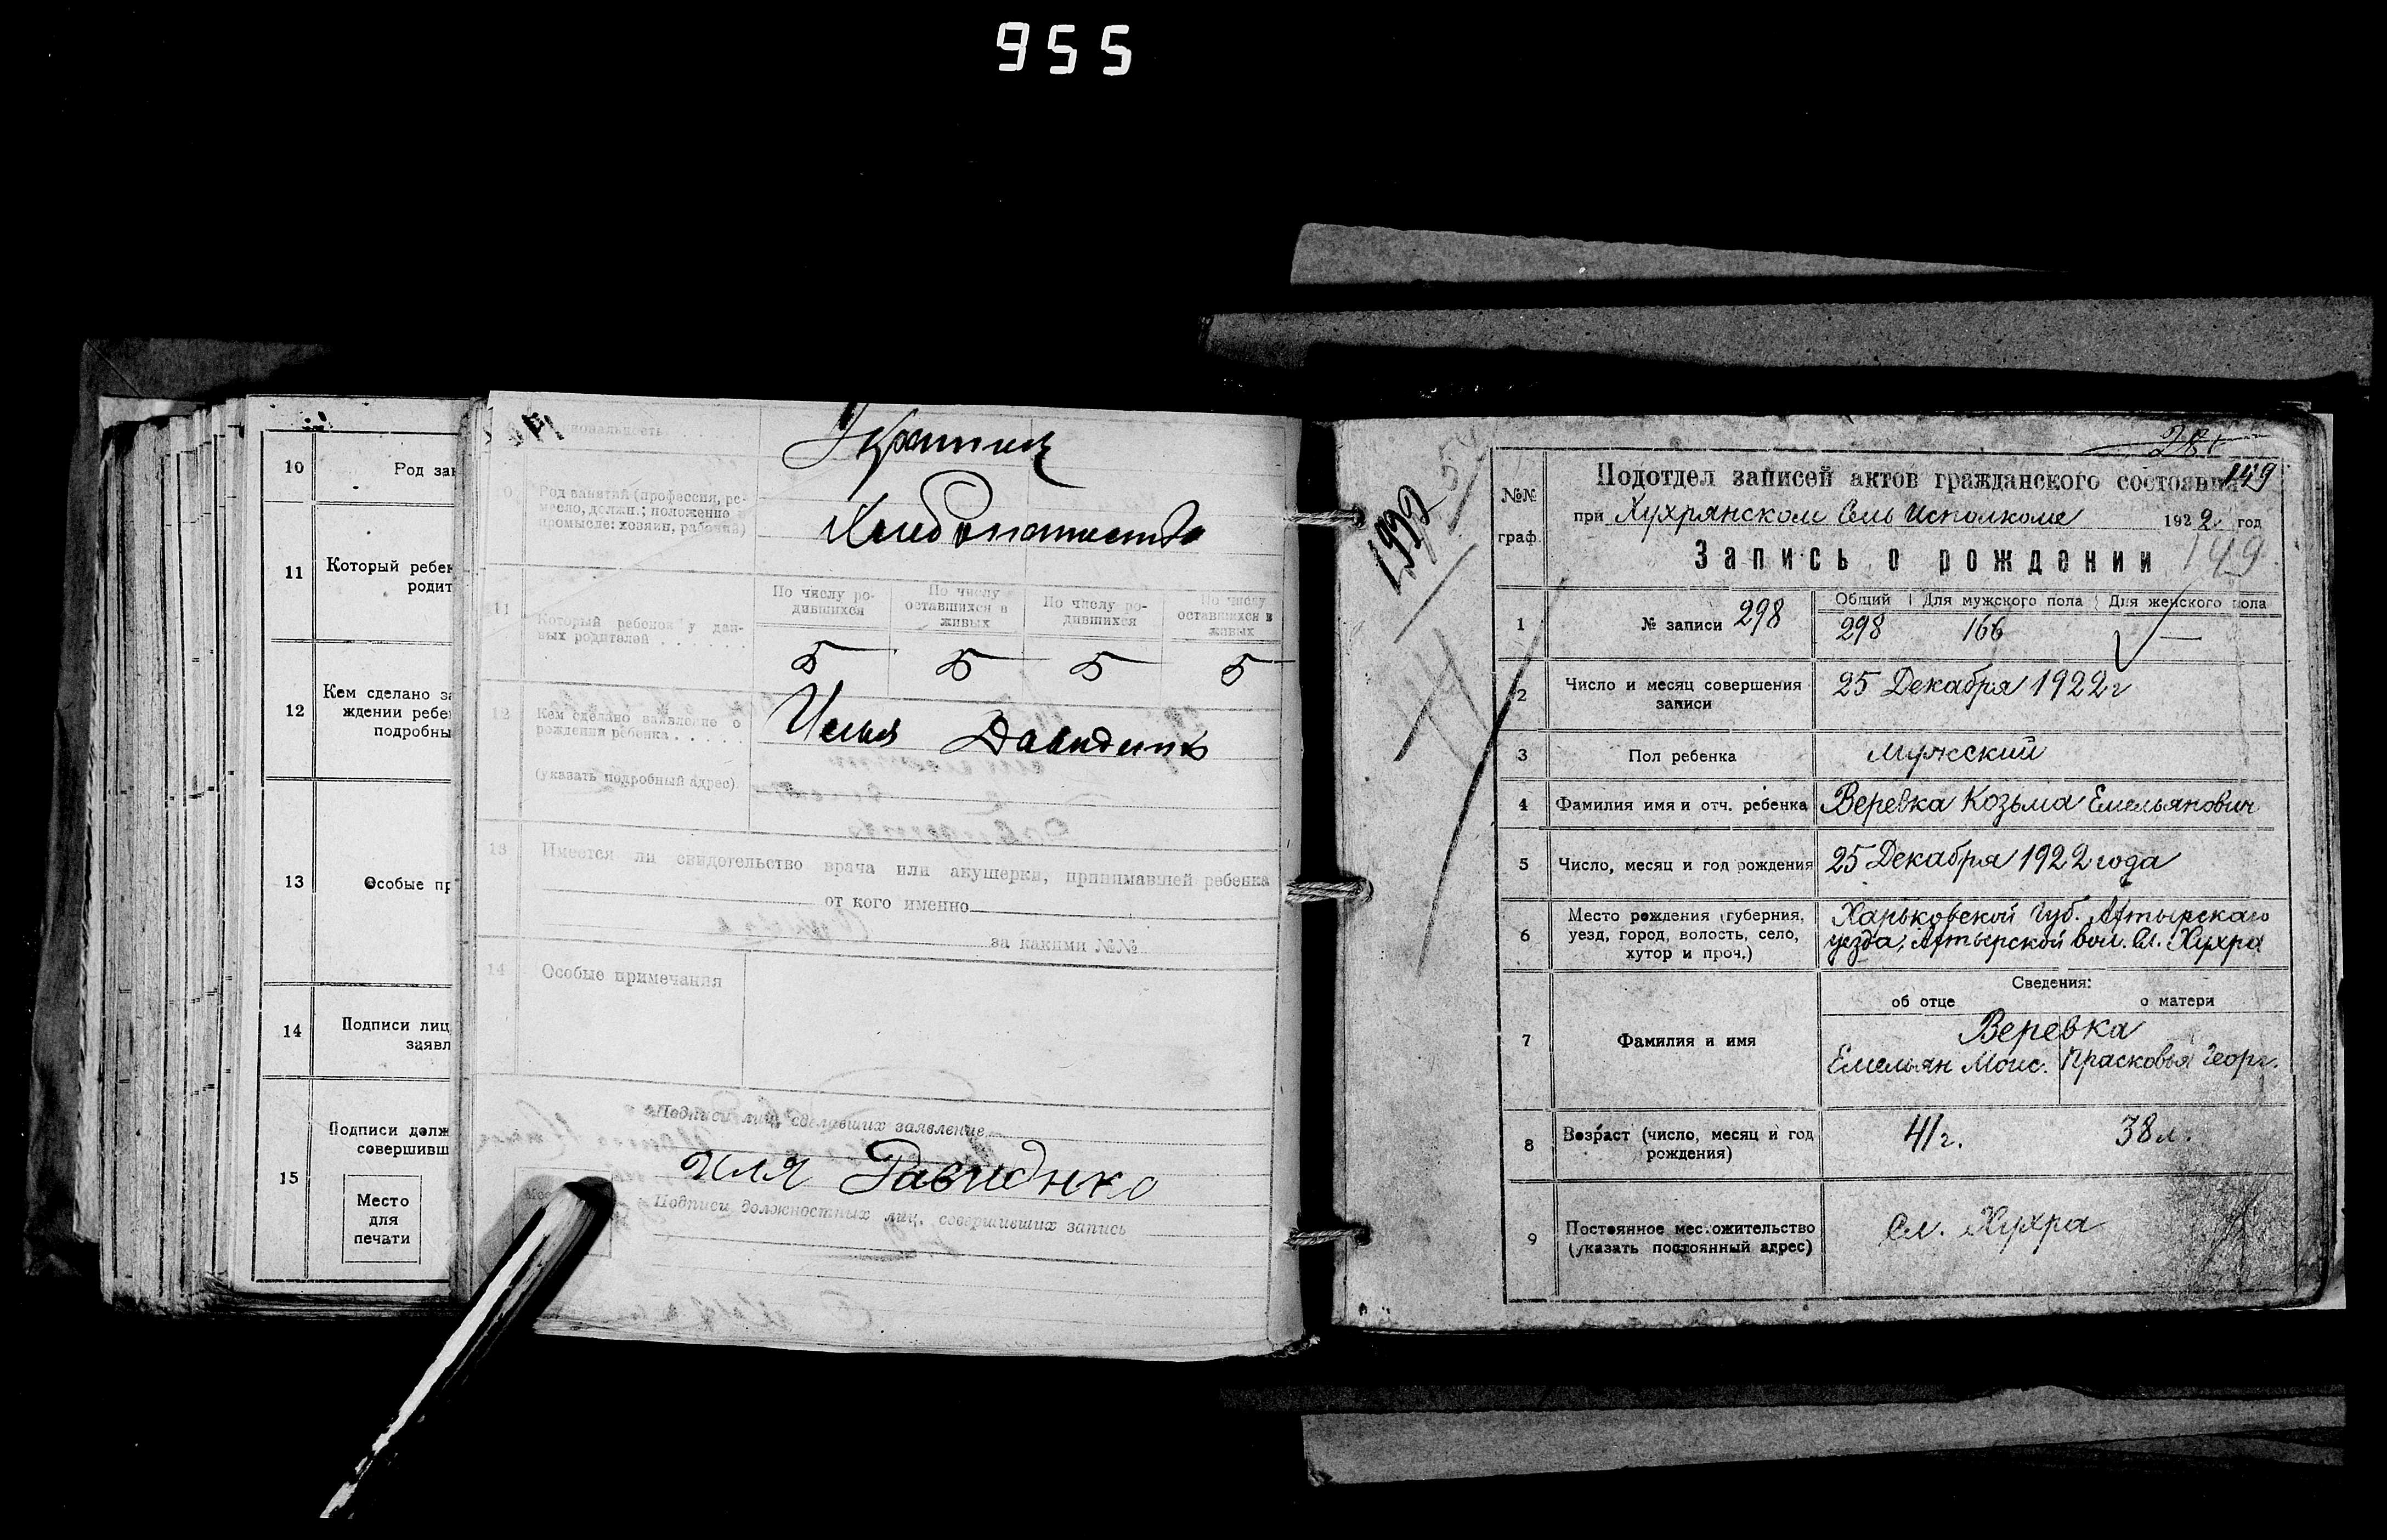 955
10
Род зан
11
Который ребен
родит
12
Кем сделано за
ждении ребе
подробны
13
Особые пр
14
Подписи лиц
заявл
15
Подписи долж
совершивш
Место
для
печати
циональность
Украинец
Род занятий (профессия, ре-
месло, должн.; положение в
промысле: хозяин, рабочий)
Хлебопашество
11
Который ребенок у дан-
ных родителей
По числу ро-
дившихся
По числу
оставшихся в
живых
По числу ро-
дившихся
По числу
оставшихся в
живых
5 5 5 5
12
Кем сделано заявление о
рождении ребенка
(указать подробный адрес)
Илья Давиденко
13
Имеется ли свидетельство врача или акушерки, принимавшей ребенка
от кого именно
за какими №№
14
Особые примечания
Подписи лиц, сделавших заявление
Иля Давиднко
Подписи должностных лиц, совершивших запись
№№
граф.
Подотдел записей актов гражданского состояния
149
при Хухрянском Сель Исполкоме 1922 год
Запись о рождении
149
1
№ записи 298
Общий Для мужского пола Для женского пола
298 166 —
2
Число и месяц совершения
записи
25 Декабря 1922 г
3
Пол ребенка
мужский
4
Фамилия имя и отч. ребенка
Веревка Козьма Емельянович
5
Число, месяц и год рождения
25 Декабря 1922 года
6
Место рождения (губерния,
уезд, город, волость, село,
хутор и проч.)
Харьковской Губ. Ахтырскаго
уезда, Ахтырской вол. Сл. Хухра
Сведения:
об отце о матери
7
Фамилия и имя
Веревка
Емельян Моис. Прасковья Георг.
8
Возраст (число, месяц и год
рождения)
41 г. 38 л.
9
Постоянное местожительство
(указать постоянный адрес)
Сл. Хухра